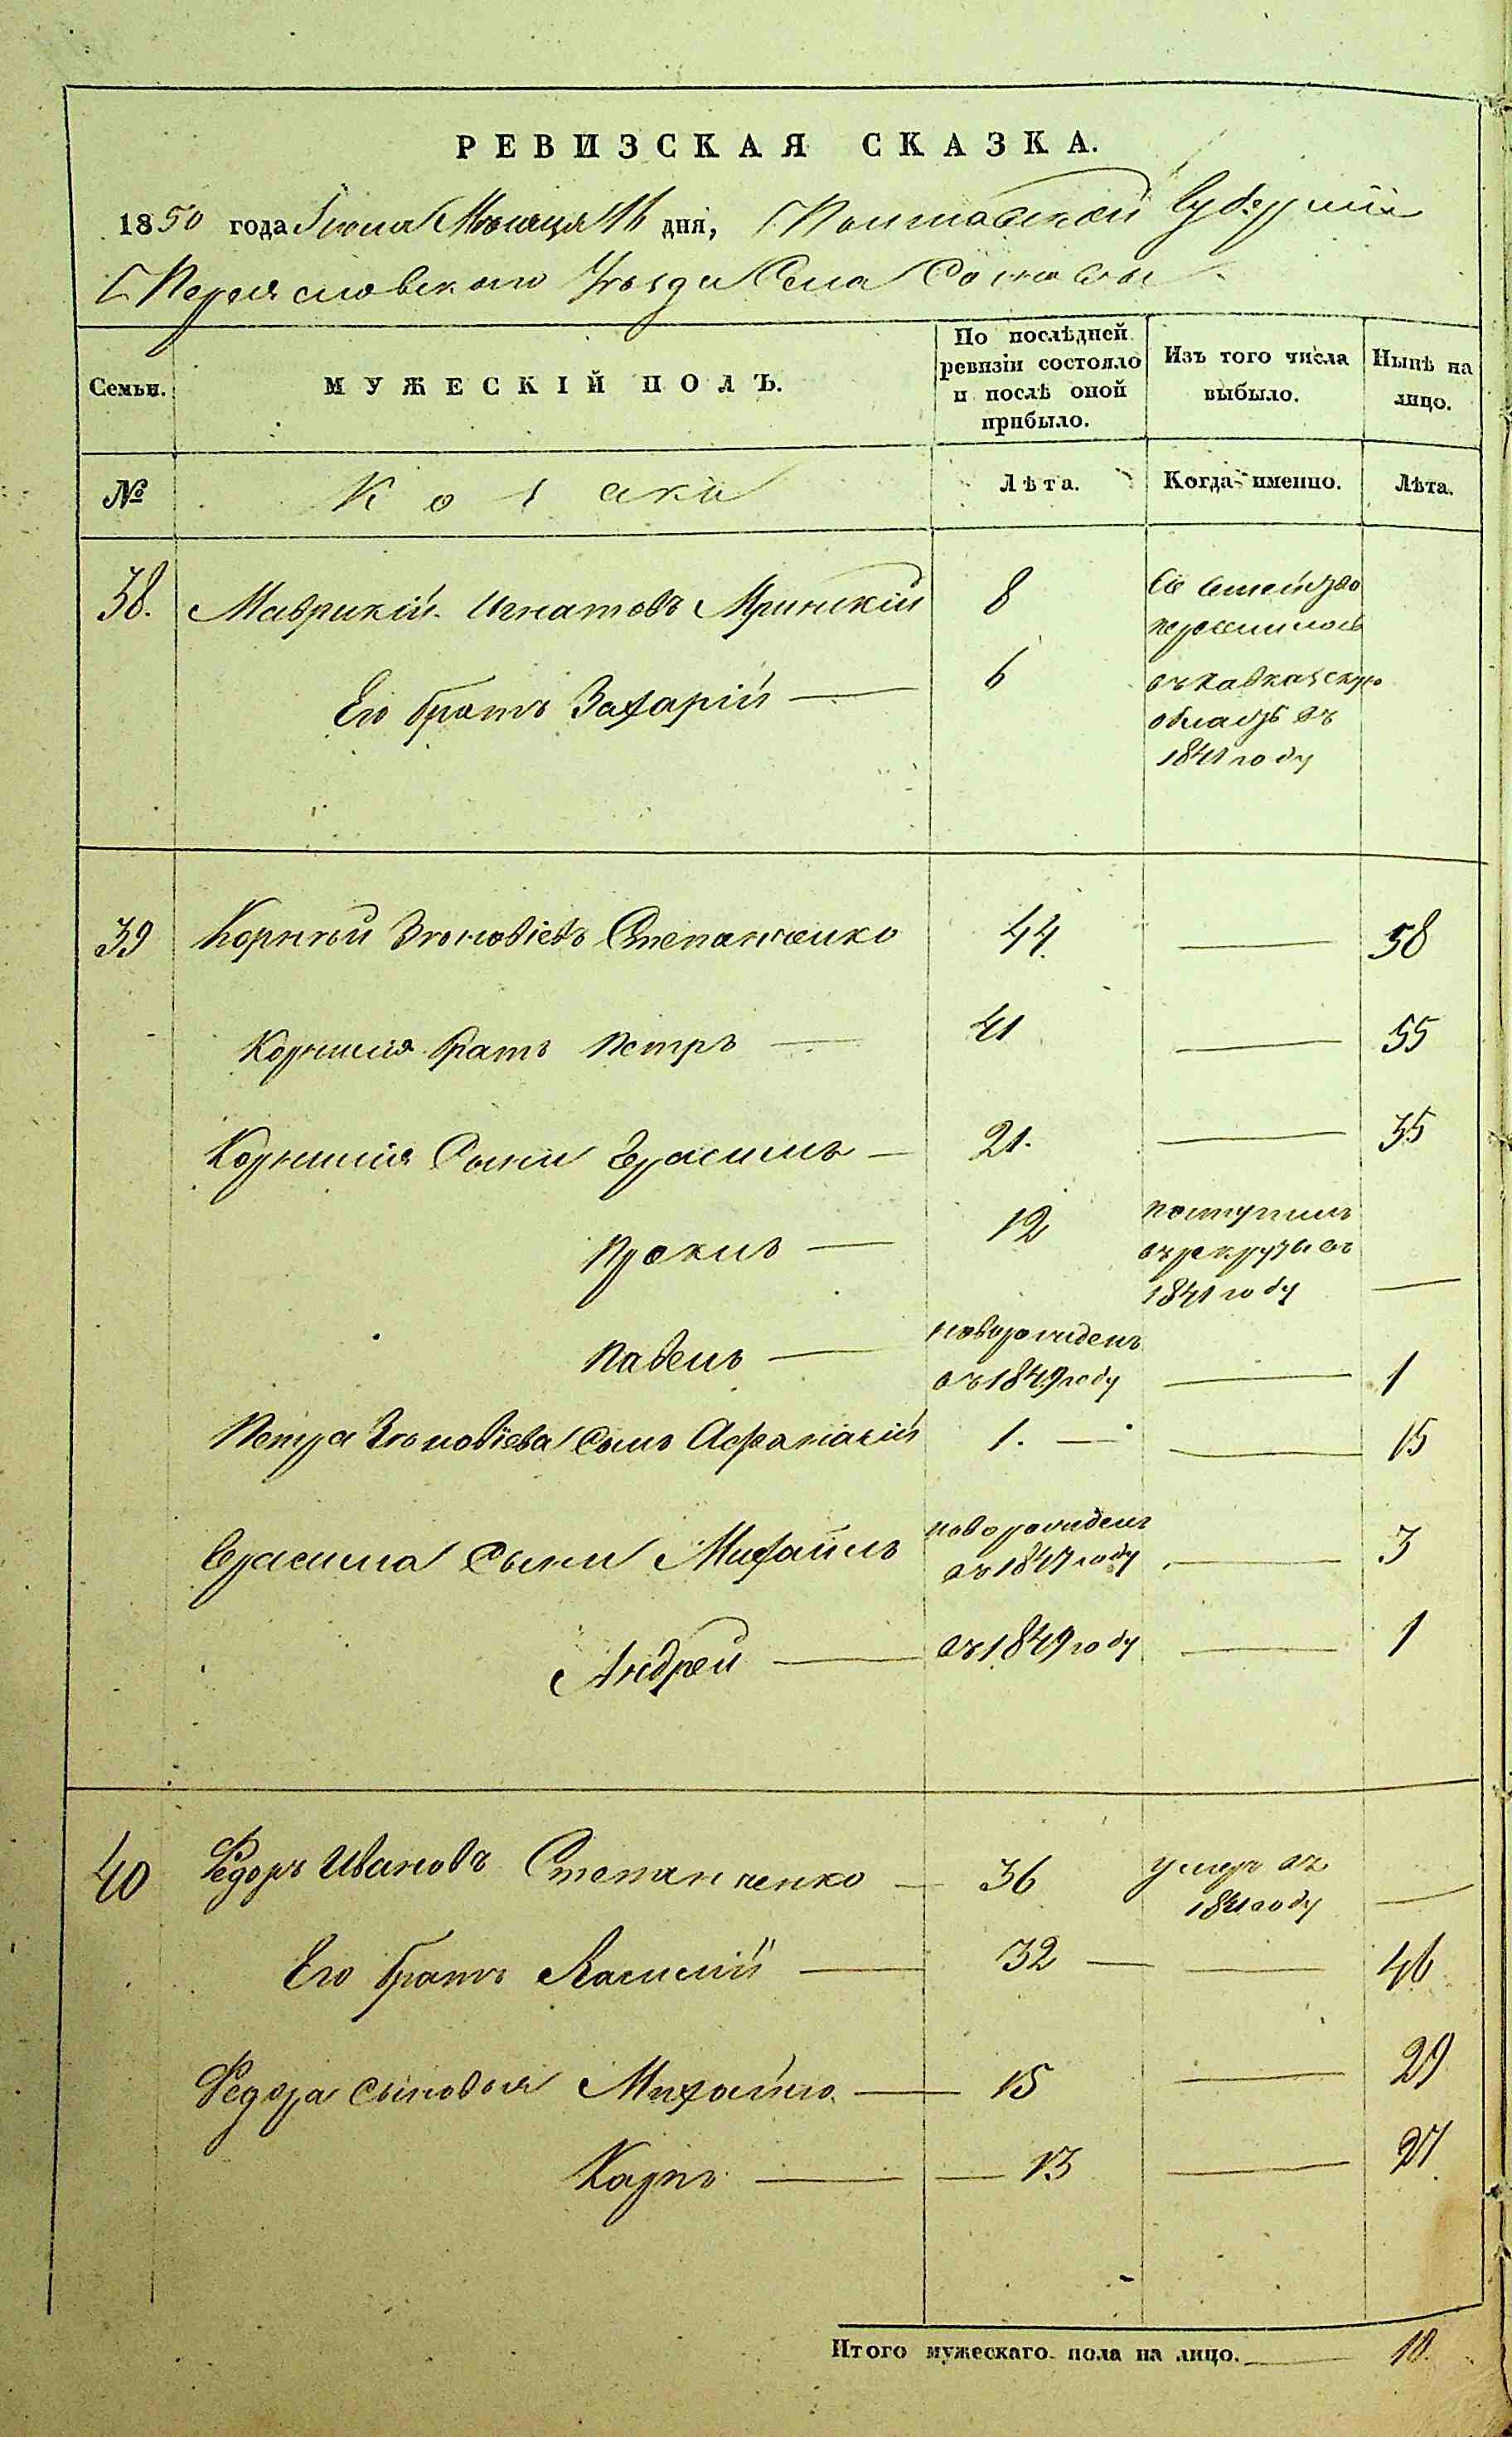 РЕВИЗСКАЯ СКАЗКА.
1850 года Іюля Месяца 16 дня, Полтавской Губерніи
Переясловского Уезда Села Сосновы
Семьи.
МУЖЕСКІЙ ПОЛЪ.
По послѣдней ревизіи состояло и послѣ оной прибыло.
Изъ того числа выбыло.
Нынѣ на лицо.
№
Козаки
Лѣта.
Когда именно.
Лѣта.
38. Маврикій Игнатовъ 8 Сіе семейство
переселилось
Его братъ Захарій — 6 въ Кавказскую
область въ
1841 году
39 Корнѣй Зѣновіевъ Степанченко 44. — 58
Корнилія братъ Петръ — 41 — 55
Корнилія Сыны Герасимъ — 21. — 35
Прокипъ — 12 поступилъ
въ рекруты въ
1841 году —
Павелъ — новорожденъ
въ 1849 году — 1
Петра Зѣновіева сынъ Афанасій 1. — — 15
Герасима Сыны Михаилъ новорожденъ
въ 1847 году — 3
Андрей — въ 1849 году — 1
40 Федоръ Ивановъ Степанченко — 36 умеръ въ
1841 году —
Его братъ Василій — 32 — — 46
Федора сыновья Михайло — 15 — 29
Карпъ — — 13 — 27
Итого мужескаго пола на лицо. — 10.